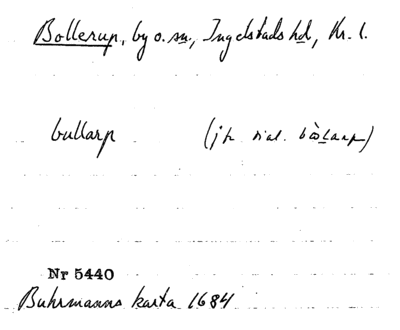 Bollerup, by o. sn, Ingelstads hd, Kr. l.
bullarp (jfr dial. bòlarp)
Nr 5440
Buhrmanns karta 1684